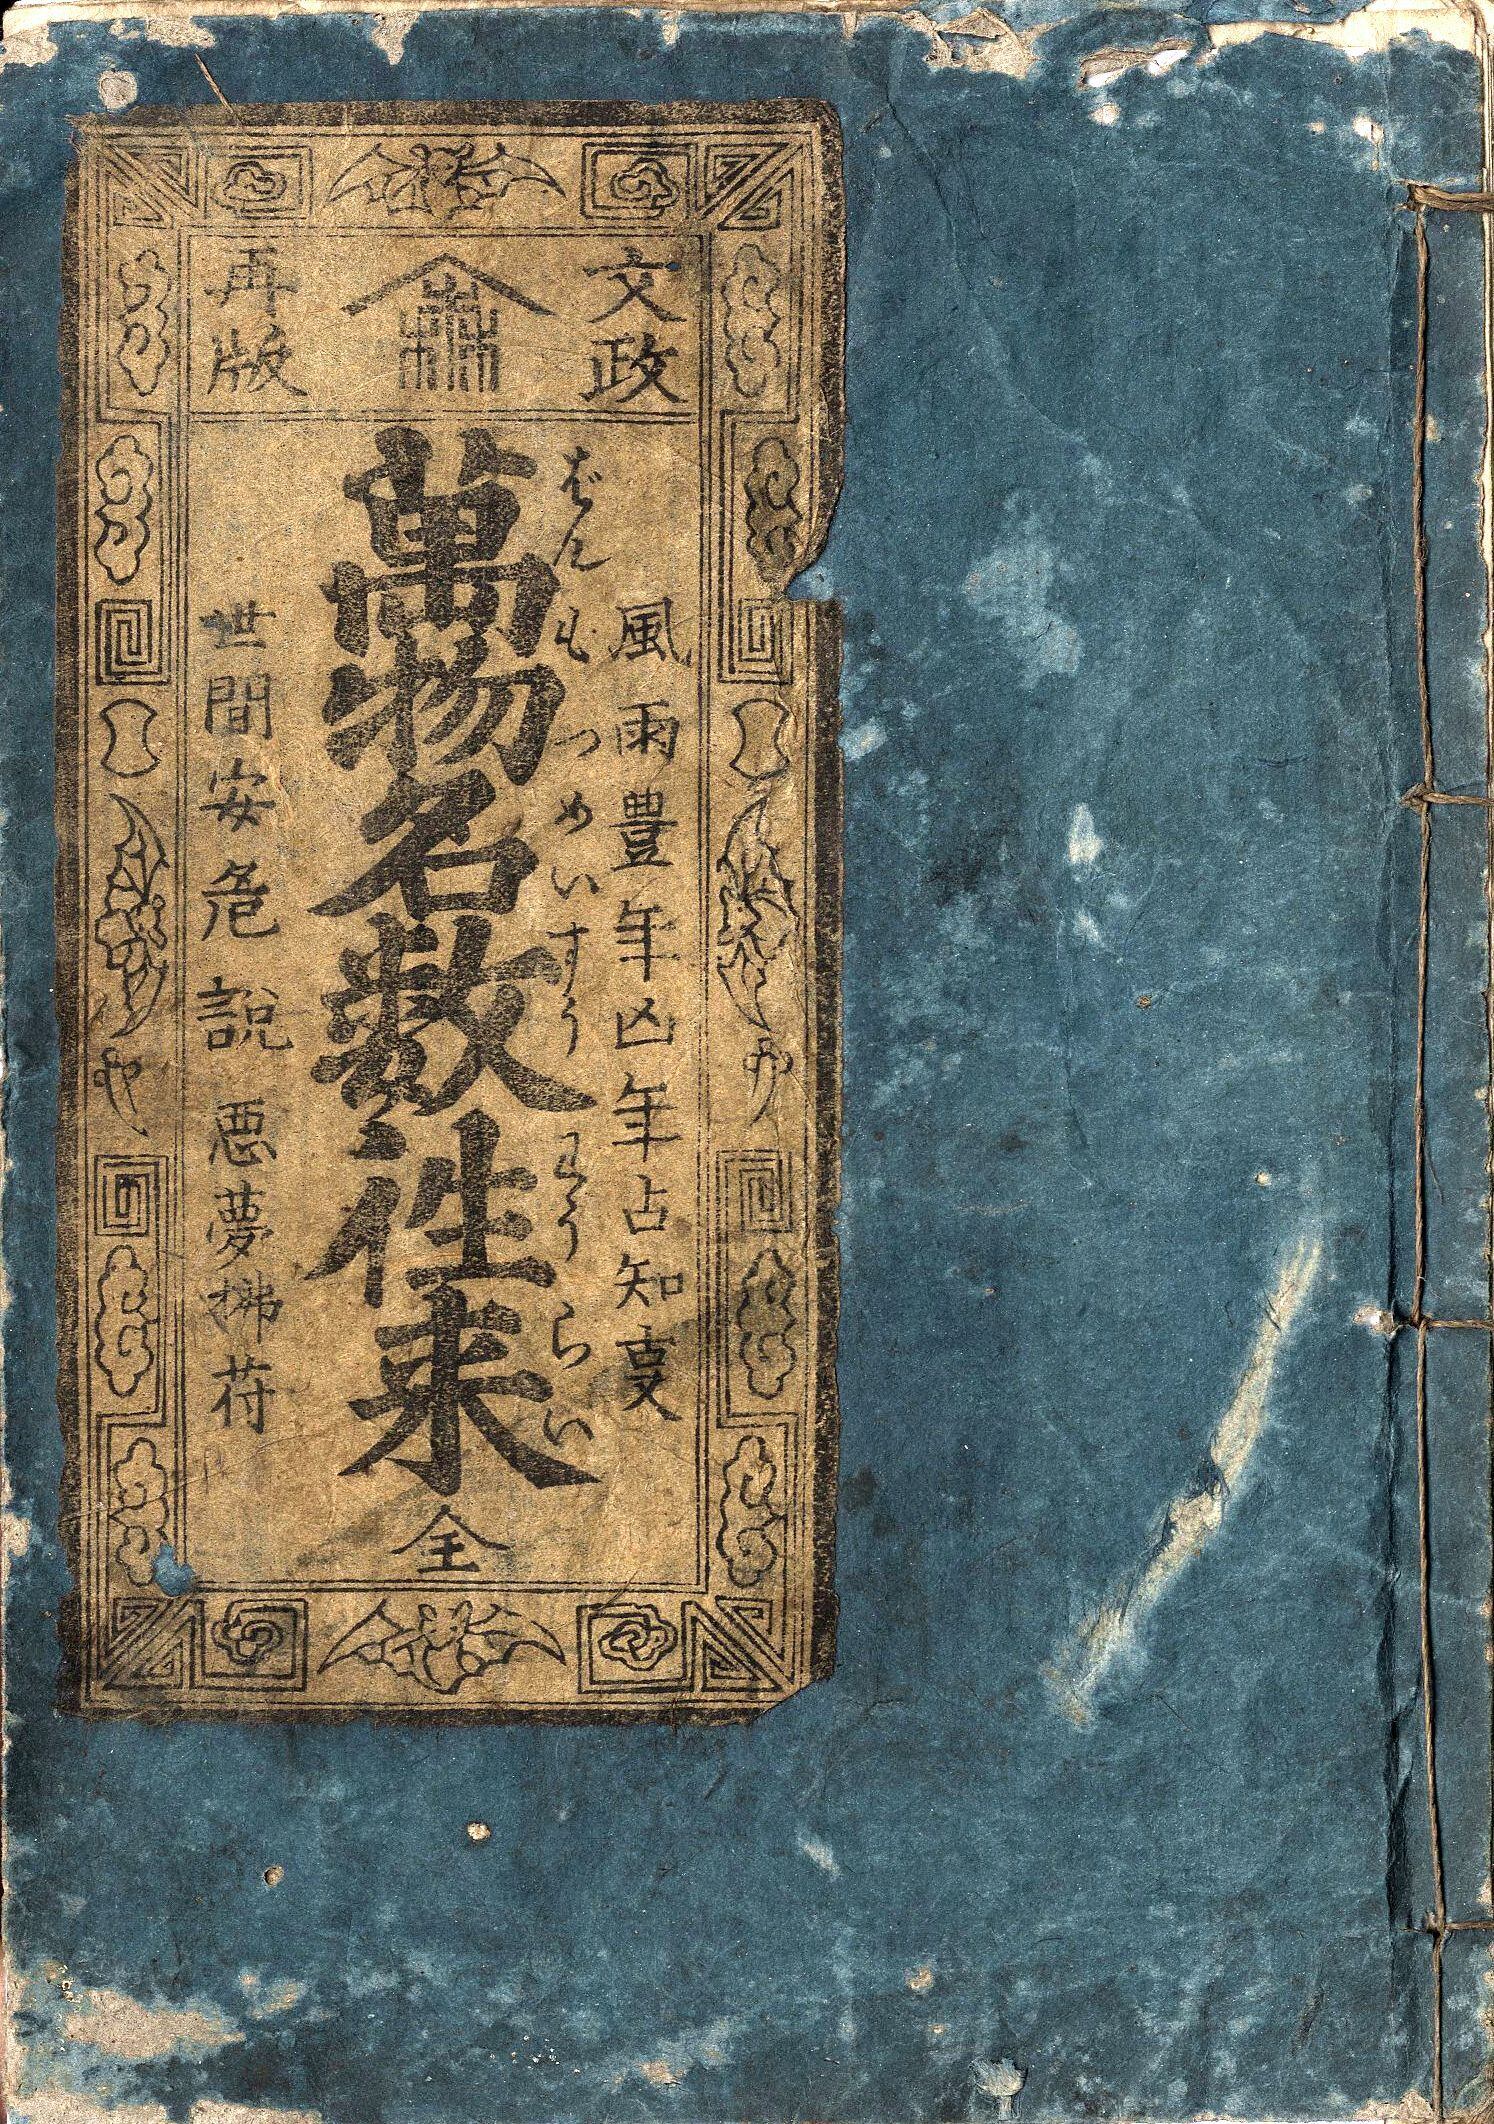 文政
再版
風雨豊年凶年占知叓
ばんもつめいすうわうらい
萬物名数往来 全
世間安危説悪夢拂符